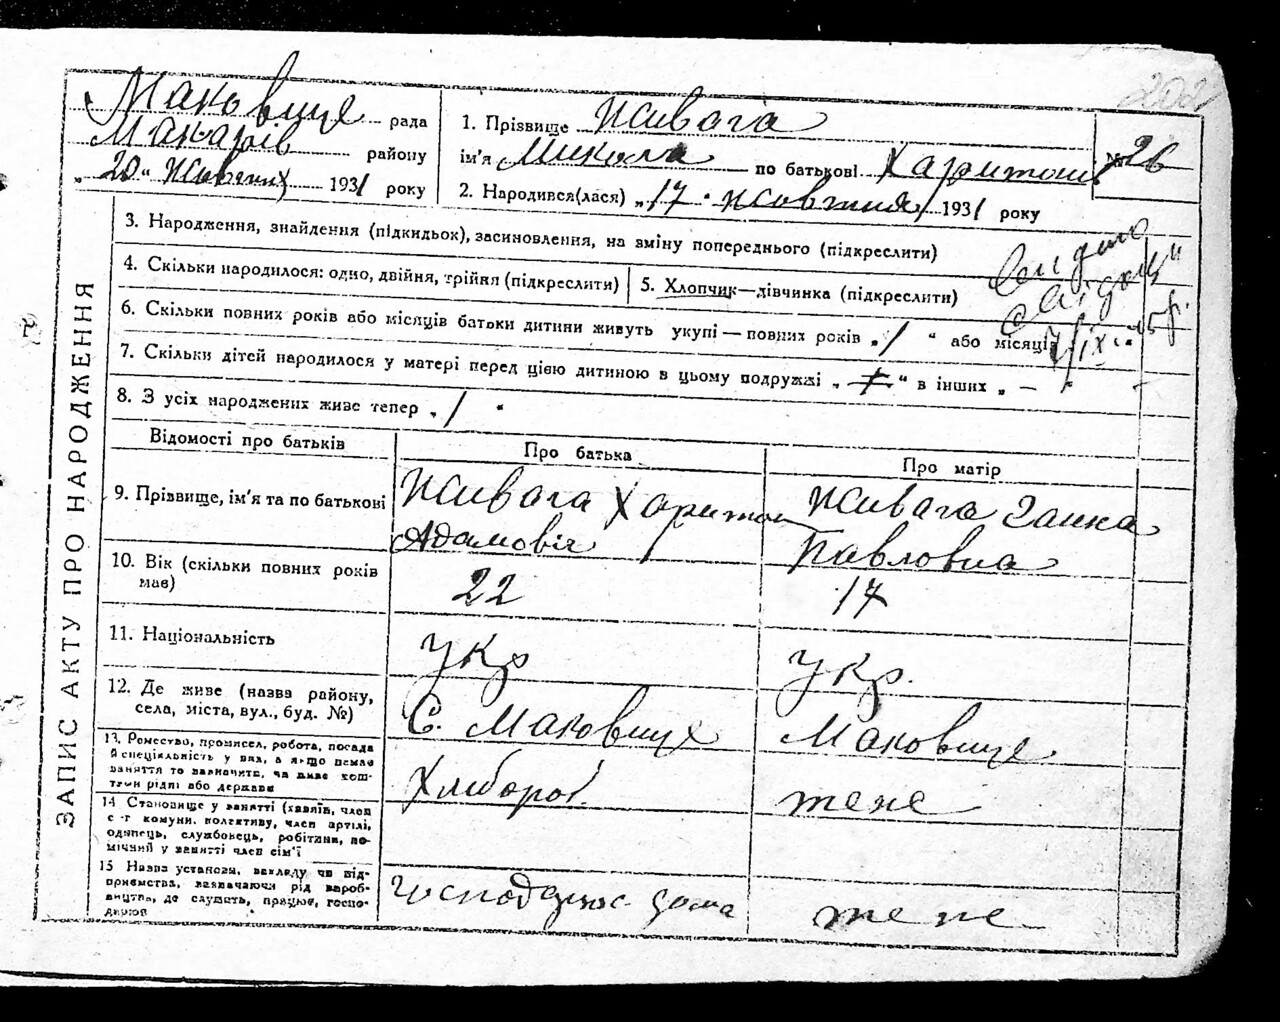 202
Маковище рада
Макарів району
„20" Жовтня 1931 року
1. Прізвище Живага
ім'я Микола по батькові Харитонів
2. Народився(лася) „17" жовтня 1931 року
№ 26
3. Народження, знайдення (підкидьок), засиновлення, на зміну попереднього (підкреслити)
4. Скільки народилося: одно, двійня, трійня (підкреслити)
5. Хлопчик—дівчинка (підкреслити)
6. Скільки повних років або місяців батьки дитини живуть укупі—повних років „1" або місяців
7. Скільки дітей народилося у матері перед цією дитиною в цьому подружжі „ " в інших „ —
8. З усіх народжених живе тепер „1"
ЗАПИС АКТУ ПРО НАРОДЖЕННЯ
Відомості про батьків
Про батька
Про матір
9. Прізвище, ім'я та по батькові
Живага Харитон
Адамовіч
Живага Ганка
Павловна
10. Вік (скільки повних років
має)
22
17
11. Національність
укр
укр.
12. Де живе (назва району,
села, міста, вул., буд. №)
С. Маковище
Маковище
13. Ремество, промисел, робота, посада
й спеціяльність у них, а якщо немає
заняття то зазначити, чи живе кош-
том рідні або держави
Хлібороб
теже
14 Становище у занятті (хазяїн, член
с-г комуни, колективу, член артілі,
одинець, службовець, робітник, по-
мічний у занятті член сім'ї
15 Назва установи, закладу чи під-
приємства, зазначаючи рід вироб-
ництва, де служить, працює, госпо-
дарює
дома
теже